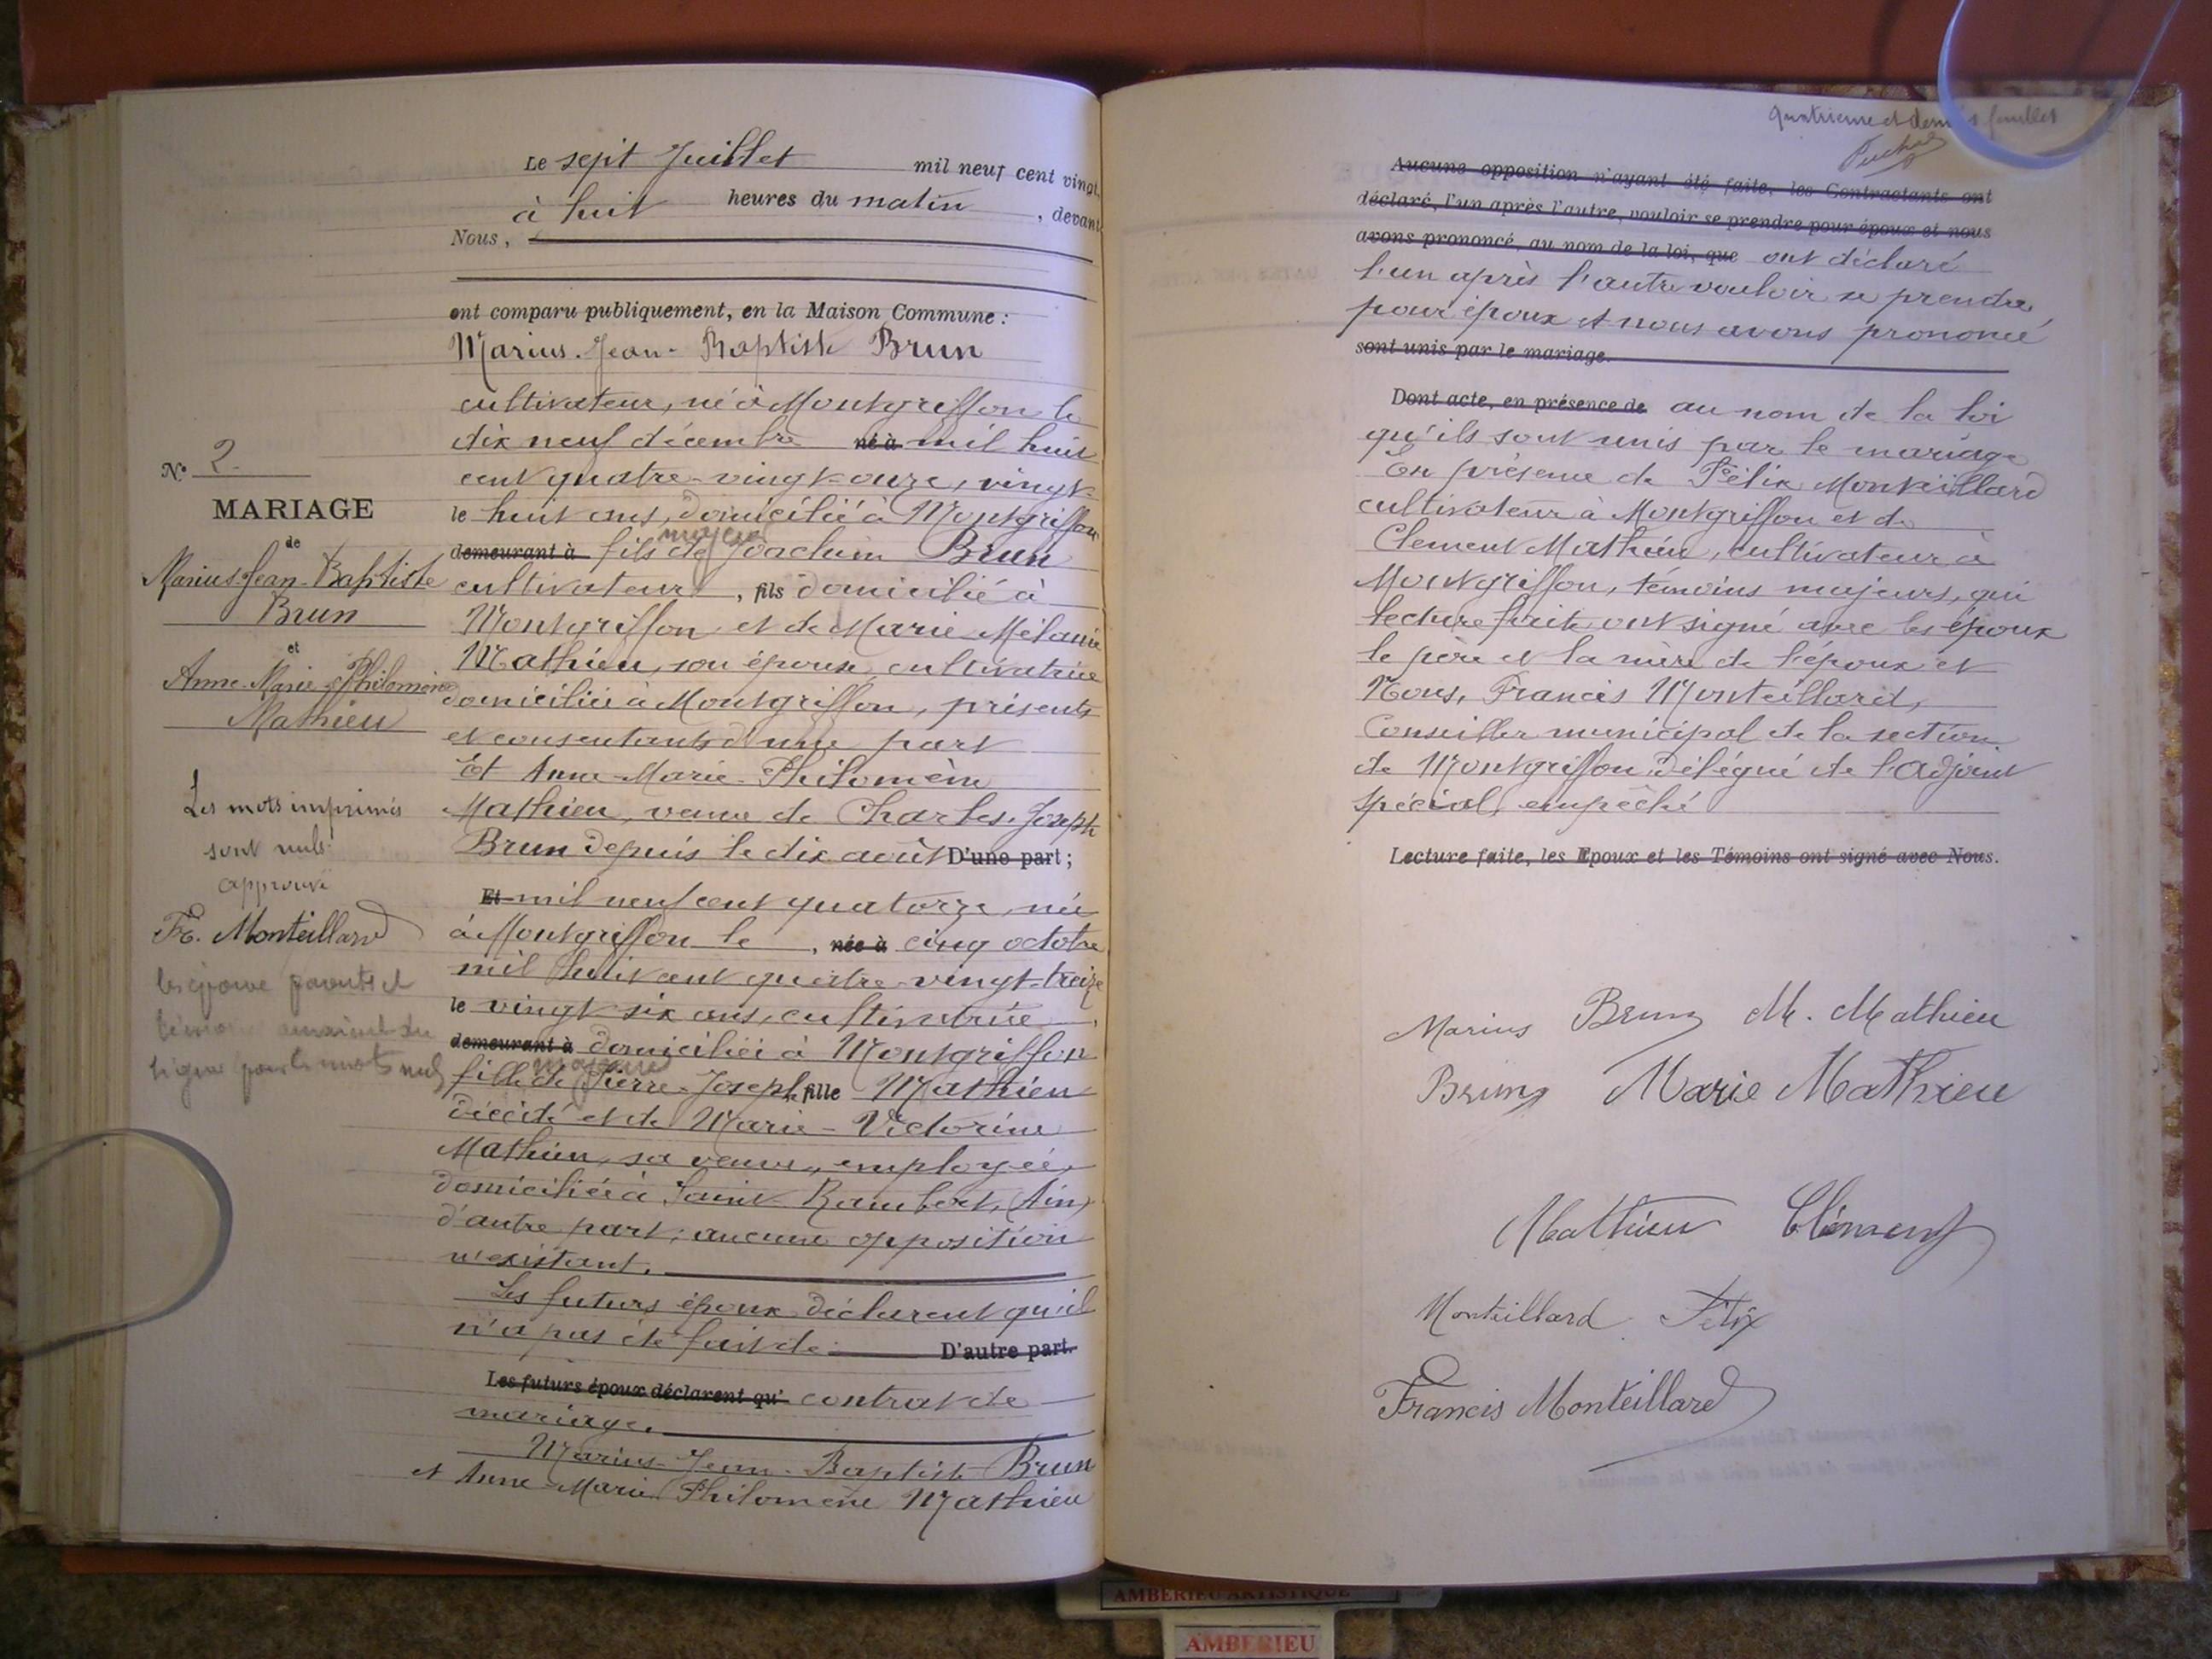 N° 2
MARIAGE
de
Marius-Jean-Baptiste
Brun
et
Anne-Marie-Philomène
Mathieu
Les mots imprimés
sont nuls
approuvé
Fs. Monteillard
les époux parents et
signer pour le mots nuls
Le sept Juillet mil neuf cent vingt,
à huit heures du matin, devant
Nous,
ont comparu publiquement, en la Maison Commune :
Marius-Jean-Baptiste Brun
cultivateur, né à Montgriffon le
dix neuf décembre né à mil huit
cent quatre-vingt-onze, vingt-
le huit ans, domicilié à Montgriffon
majeur
demeurant à fils de Joachim Brun
cultivateur, fils domicilié à
Montgriffon et de Marie Mélanie
Mathieu, son épouse, cultivatrice
domiciliée à Montgriffon, présents
et consentants d'une part
Et Anne-Marie-Philomène
Mathieu, veuve de Charles-Joseph
Brun depuis le dix août D'une part ;
Et mil neuf cent quatorze, née
à Montgriffon le, née à cinq octobre
mil huit cent quatre-vingt-treize
le vingt six ans, cultivatrice,
demeurant à domiciliée à Montgriffon
majeure
fille de Pierre-Joseph fille Mathieu
décédé et de Marie-Victorine
Mathieu, sa veuve, employée,
domiciliée à Saint-Rambert, (Ain)
d'autre part ; aucune opposition
n'existant.
Les futurs époux déclarent qu'il
n'a pas été fait de D'autre part.
Les futurs époux déclarent qu' contrat de
mariage.
Marius-Jean-Baptiste Brun
et Anne-Marie Philomène Mathieu
quatrième et dernier feuillet
Aucune opposition n'ayant été faite, les Contractants ont
déclaré, l'un après l'autre, vouloir se prendre pour époux et nous
avons prononcé, au nom de la loi, que ont déclaré
l'un après l'autre vouloir se prendre
pour époux et nous avons prononcé
sont unis par le mariage.
Dont acte, en présence de au nom de la loi
qu'ils sont unis par le mariage
En présence de Félix Monteillard
cultivateur à Montgriffon et de
Clement Mathieu, cultivateur à
Montgriffon, témoins majeurs, qui
lecture faite ont signé avec les époux
le père et la mère de l'époux et
Nous, Francis Monteillard,
Conseiller municipal de la section
de Montgriffon délégué de l'Adjoint
Spécial, empêché
Lecture faite, les Epoux et les Témoins ont signé avec Nous.
Marius Brun M. Mathieu
Brun Marie Mathieu
Mathieu Clément
Monteillard Félix
Francis Monteillard
AMBERIEU ARTISTIQUE
AMBERIEU